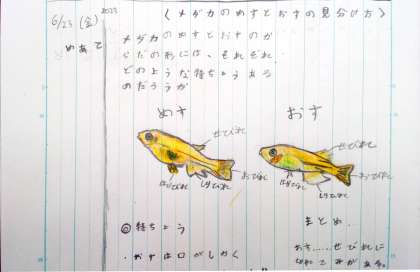 2023
6/23 (金) 〈メダカのめすとおすの見分け方〉
めあて メダカのめすとおすのか
らだの形には、それぞれ
どのような特ちょうがある
のだろうか
めす おす
せびれ せびれ
はらびれ しりびれ おびれ
はらびれ しりびれ おびれ
◎特ちょう まとめ
おす……せびれに